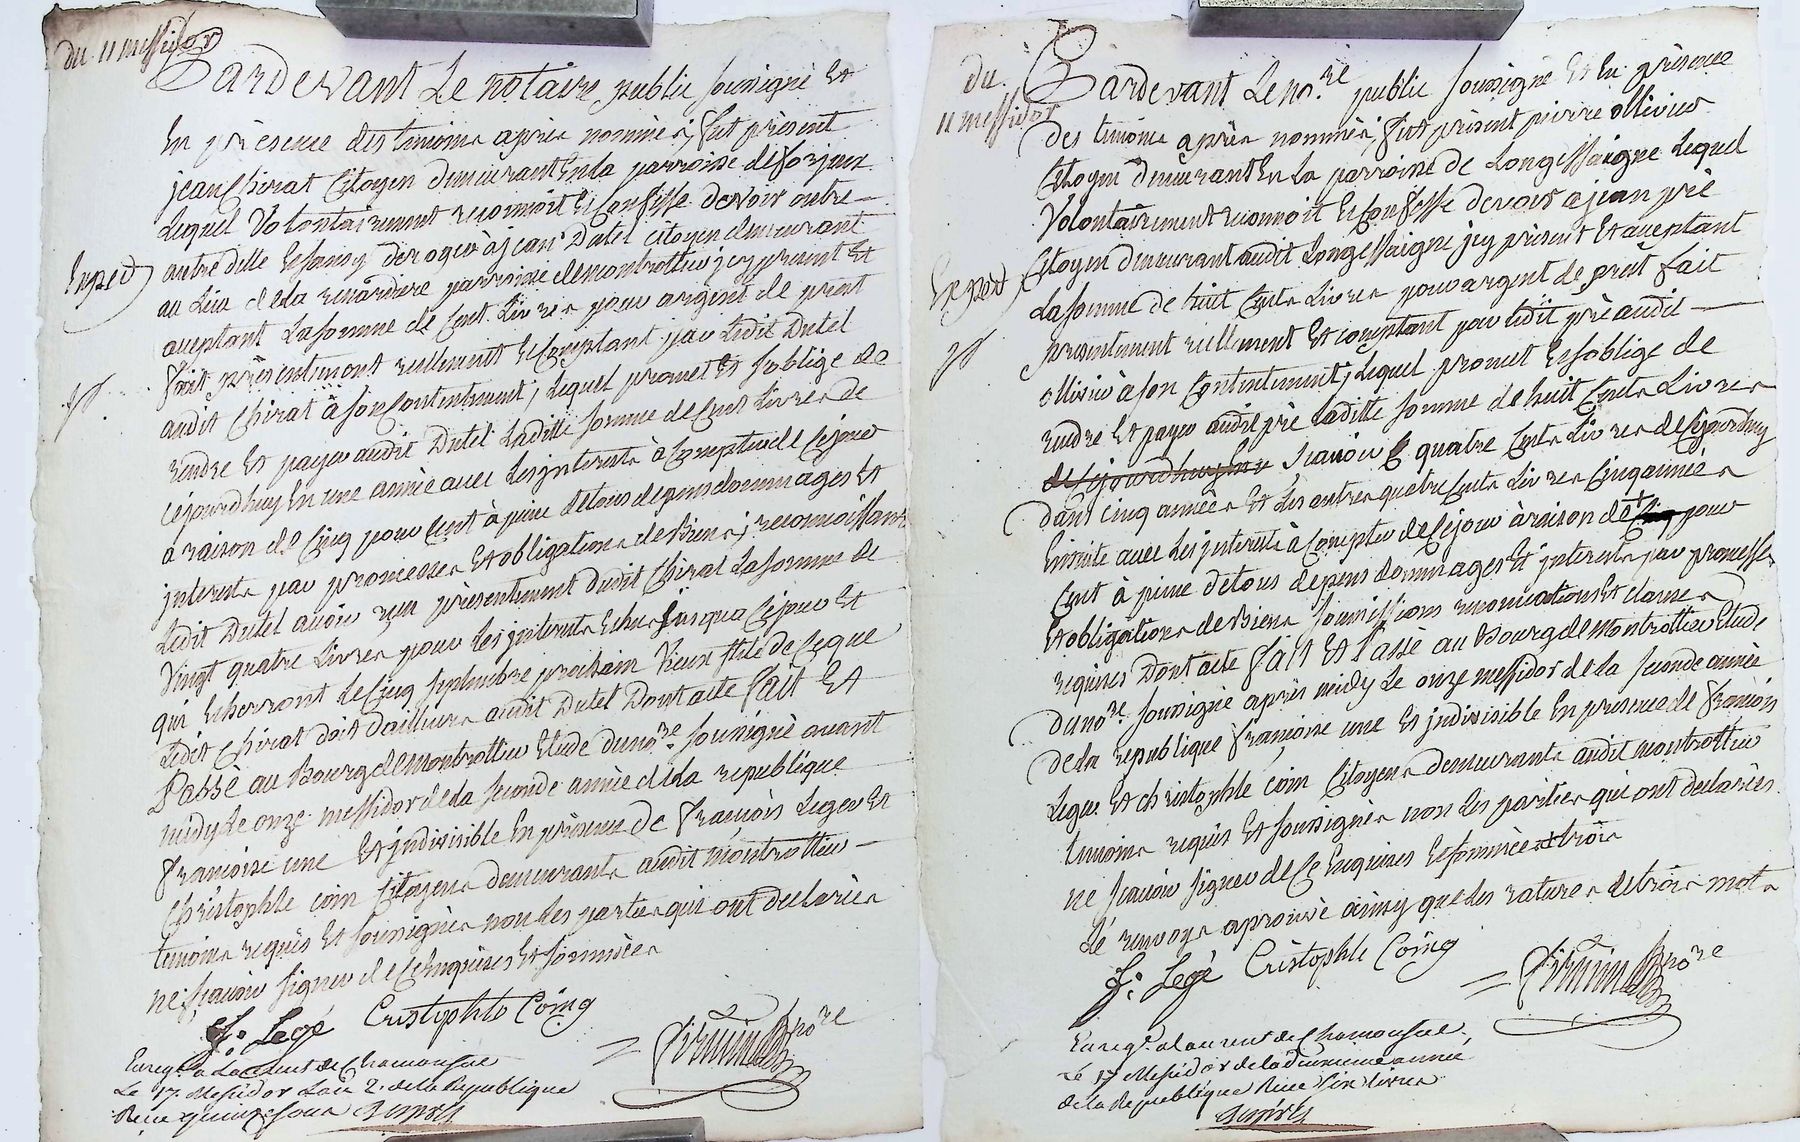 du 11 messidor
Pardevant Le notaire public soussigné Et
En présence des témoins après nommés, fut présent
jean Chirat Citoyen demeurant En la parroisse de
Lequel Volontairement reconnoit Et Confesse devoir outre
autre dette Et sans y deroger à jean Dutel citoyen demeurant
au Lieu de la renardiere parroisse de montrottier jcy présent Et
Exped
acceptant La somme de Cent Livres pour argent de prest
fait présentement reellement Et Comptant par Ledit Dutel
audit Chirat à son Contentement, Lequel promet Et s'oblige de
rendre Et payer audit Dutel Laditte somme de Cent Livres de
cejourdhuy En une année avec Les jnterests à Compter de Cejour
a raison de Cinq pour Cent à peine de tous depens dommages Et
jnterests par promesses Et obligations de Biens, reconnoissant
Ledit Dutel avoir reçu présentement dudit Chirat La somme de
Vingt quatre Livres pour Les jnterests Echus jusqua Cejour Et
qui Echerront Le Cinq septembre prochain Vieux stile de Ce que
Ledit Chirat doit dailleurs audit Dutel Dont acte fait Et
Passé au Bourg de montrottier Etude du no.re soussigné avant
midy Le onze messidor de la seconde année de la republique
françoise une Et jndivisible En présence de françois Leger Et
Christophle coin Citoyens demeurants audit montrottier
témoins requis Et soussignés non Les parties qui ont declarées
ne sçavoir signer de Ce Enquises Et sommées
f. Legé Cristophle Coing
no.re
Enreg. a Laurent de Chamousset
Le 17. Messidor Lan 2. de la Republique
Reçu quinze sous
du
11 messidor
Pardevant Le no.re public soussigné Et En présence
des témoins après nommés, fut présent pierre ollivier
Citoyen demeurant En La parroisse de Longessaigne Lequel
Volontairement reconnoit Et Confesse devoir a jean pré
Citoyen demeurant audit Longessaigne jcy présent Et acceptant
Exped
La somme de huit Cents Livres pour argent de prest fait
présentement reellement Et comptant par Ledit pré audit
ollivier à son Contentement, Lequel promet Et s'oblige de
rendre Et payer audit pré Laditte somme de huit Cents Livres
de Cejourdhuy En sçavoir quatre Cents Livres de Cejourdhuy
dans cinq années Et Les autres quatre Cents Livres Cinq années
Ensuite avec Les jnterests à Compter de Cejour à raison de + pour
Cent à peine de tous depens dommages Et jnterests par promesses
Et obligations de Biens soumissions renonciations Et clauses
requises Dont acte fait Et Passé au Bourg de montrottier Etude
du no.re soussigné après midy Le onze messidor de la seconde année
de la republique françoise une Et jndivisible En présence de françois
Leger Et christophle coin Citoyens demeurants audit montrottier
témoins requis Et soussignés non Les parties qui ont declarées
ne sçavoir signer de Ce Enquises Et sommées + trois
Le renvoy approuvé ainsy que Les ratures de trois mots
f. Legé Cristophle Coing
no.re
Enreg. a Laurent de Chamousset
Le 17 Messidor de la deuxieme année
de la Republique Reçu six livres